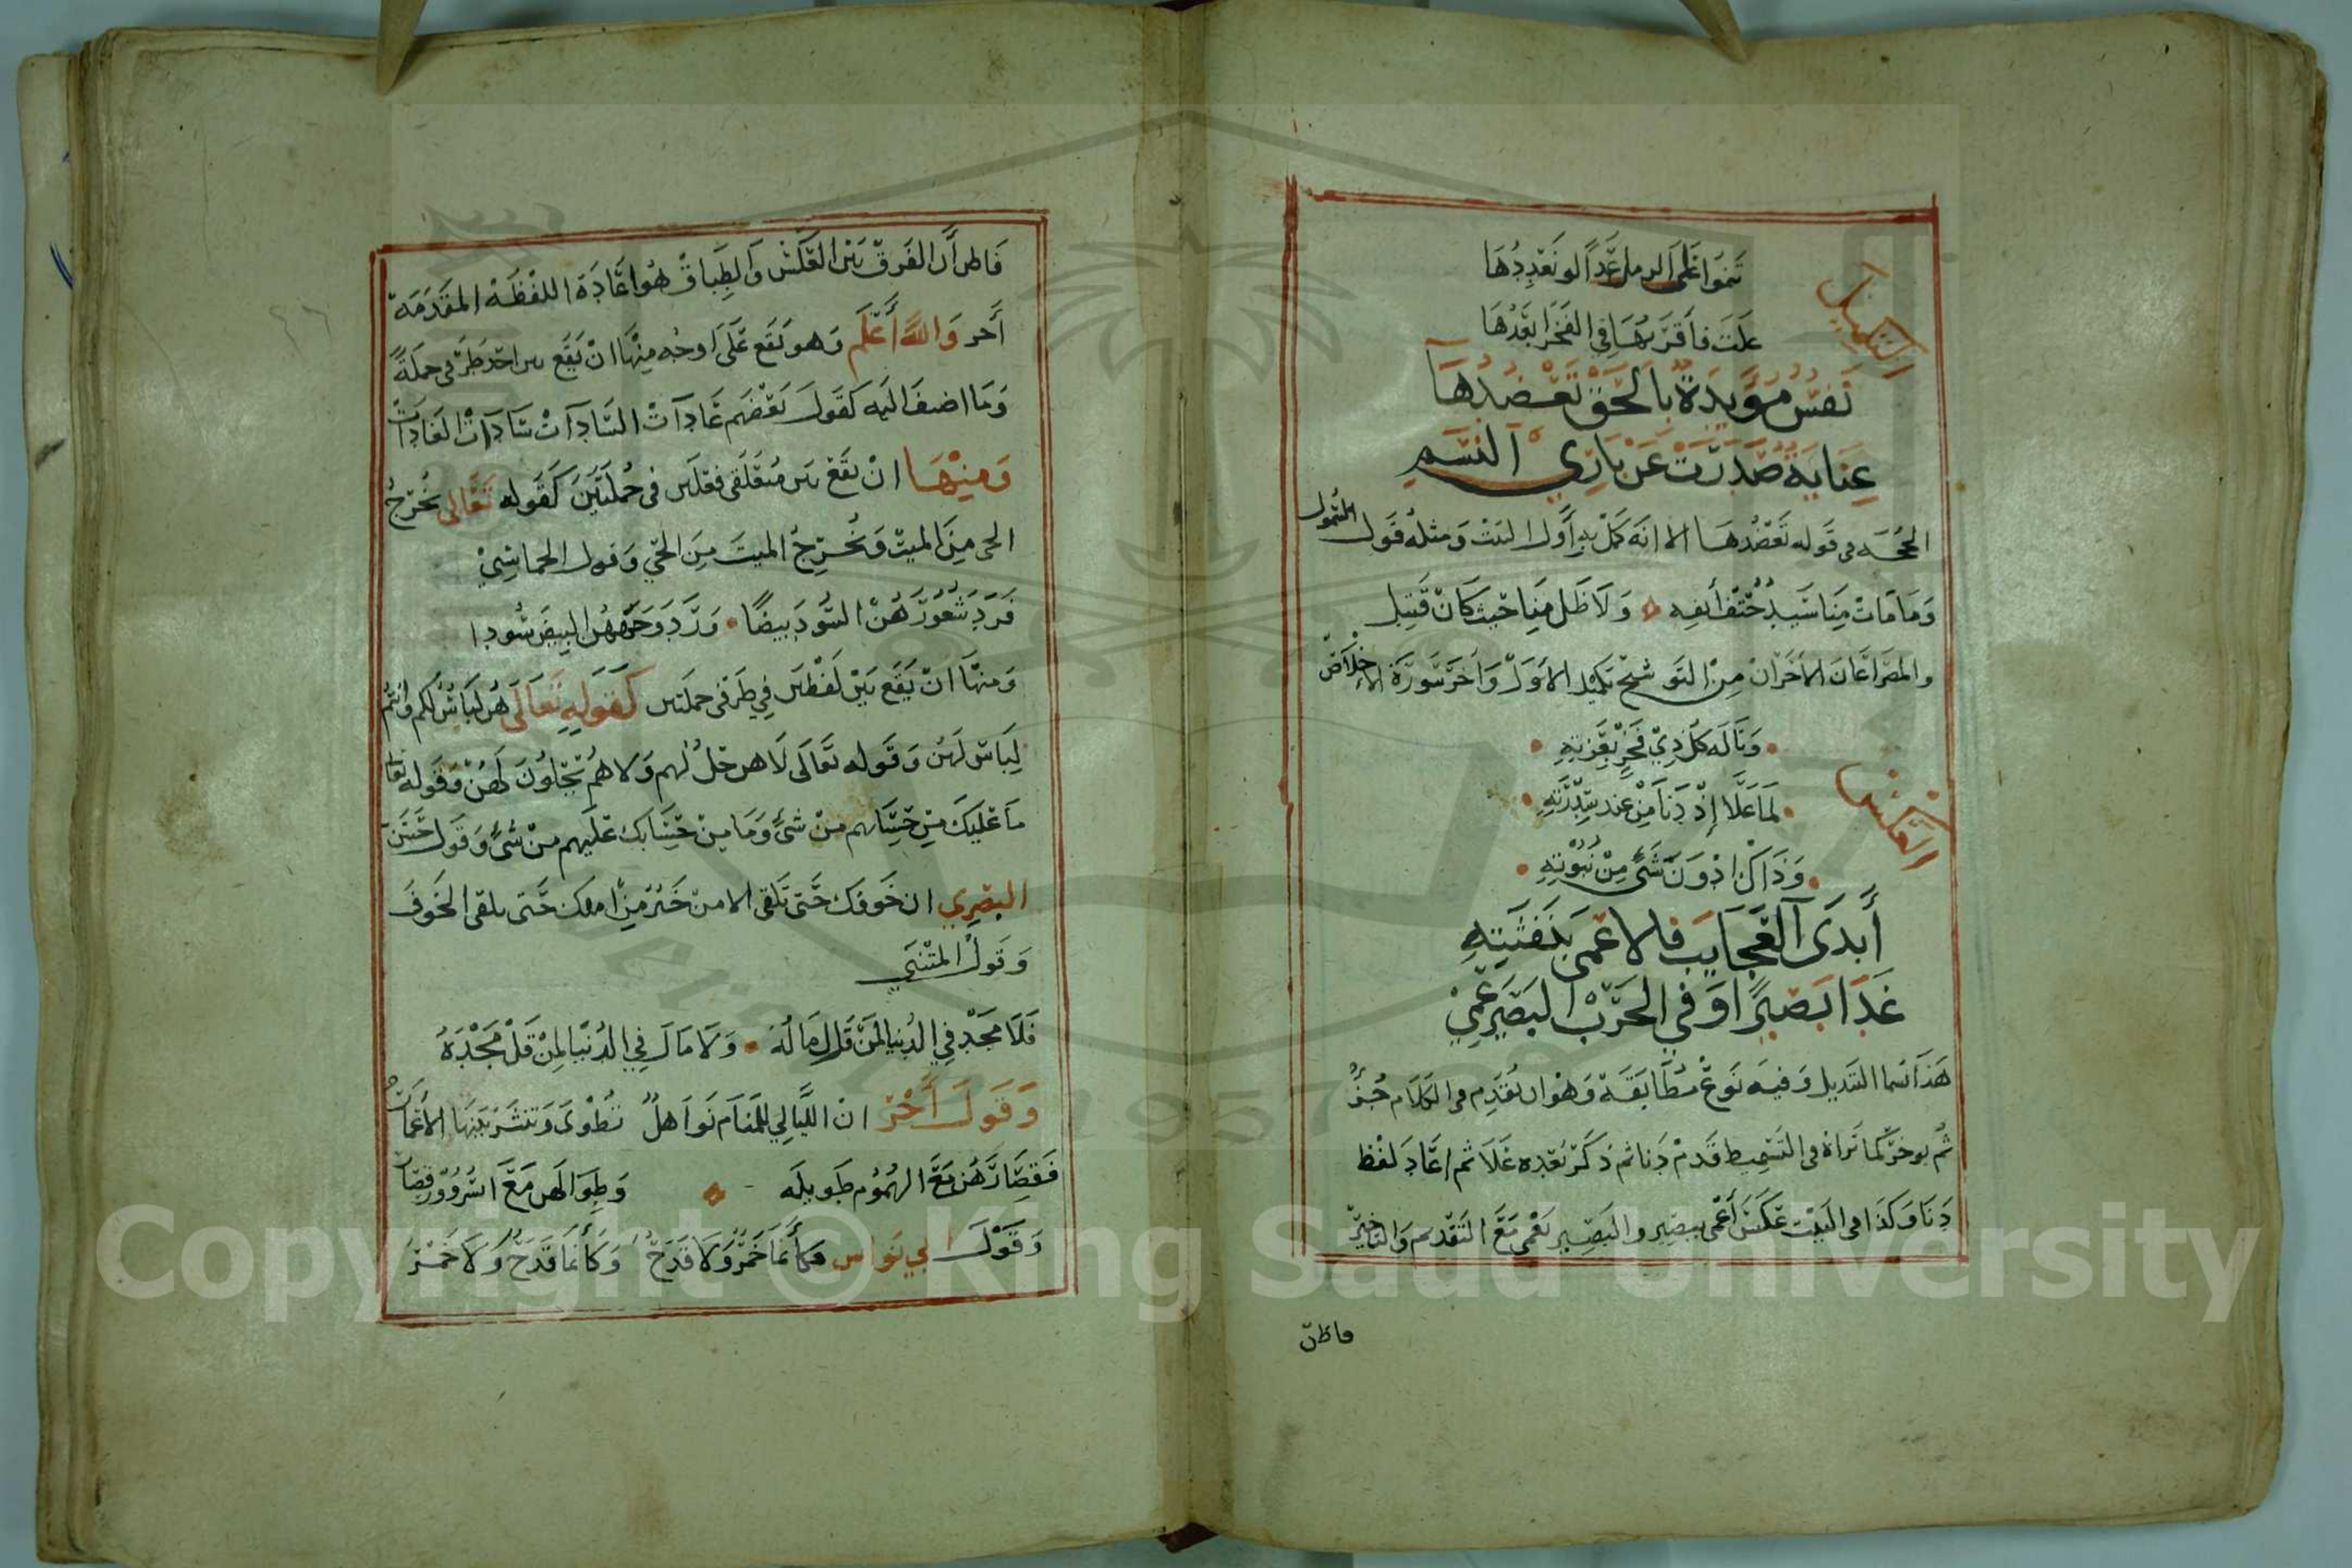 تنموا على الرمل عدا لو نعددها
علت فأقربها في الفخر ابعدها
التكميل
نفس مؤيدة بالحق تعضدها
عناية صدرت عن باري النسم
الحجه في قوله تعضدها الا انه كمل به أول البيت ومثله قول السموأل
وما مات منا سيد حتف أنفه ولا ظل منا حيث كان قتيل
والمصراعان الأخران من التوشيح تكميله الأول وأخر سورة الاخلاص
وناله كل ذي فخر بعزته
لما علا إذ دنا من عند سدرته
وذاك ادون شئ من نبوته
العكس
أبدى العجايب فالاعمى بنفثته
غدا بصيرا وفي الحرب البصير عمي
هذا سما التبديل وفيه نوع مطابقة وهو ان تقدم في الكلام جزؤ
ثم يوخر كما تراه في التسميط قدم دنا ثم ذكر بعده علا ثم اعاد لفظ
دنا وكذا في البيت عكس أعمى ببصير والبصير بعمى مع التقديم والتاخير
فاظن
فاظن أن الفرق بين العكس والطباق هو اعادة اللفظة المقدمة
أخر والله أعلم وهو يقع على اوجه منها ان يقع بين احد طرفي جملة
وما اضيف اليه كقول بعضهم عادات السادات سادات العادات
ومنها ان يقع بين متعلقي فعلين في جملتين كقوله تعالى يخرج
الحي من الميت ويخرج الميت من الحي وقول الحماسي
فرد شعورهن السود بيضا ورد وجوههن البيض سودا
ومنها ان يقع بين لفظين في طرفي جملتين كقوله تعالى هن لباس لكم وانتم
لباس لهن وقوله تعالى لا هن حل لهم ولا هم يحلون لهن وقوله تعا
ما عليك من حسابهم من شئ وما من حسابك عليهم من شئ وقول حسن
البصري ان خوفك حتى تلقى الامن خير من امنك حتى يلقى الخوف
وقول المتنبي
فلا مجد في الدنيا لمن قل ماله ولا مال في الدنيا لمن قل مجده
وقول أخر ان الليالي للمنام نواهل تطوى وتنشر بينها الأعمار
فقصارهن مع الهموم طويله وطوالهن مع السرور قصار
وقول ابي نواس فكأنما خمر ولا قدح وكأنما قدح ولا خمر
Copyright © King Saud University
1957